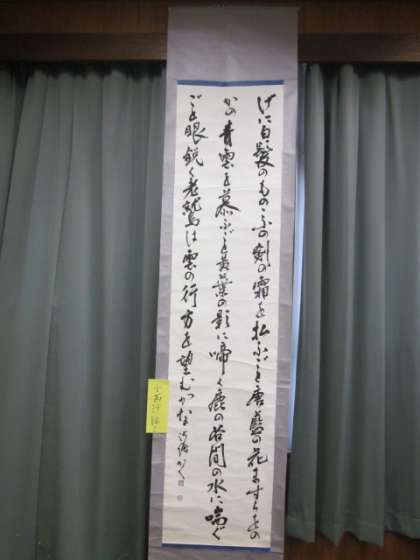 げに白髪のものゝふの剣の霜を払ふごと唐藍の花ますらをの
かの青雲を慕ふごと黄葉の影に啼く鹿の谷間の水に喘ぐ
ごと眼鋭く老鷲は雲の行方を望むかな